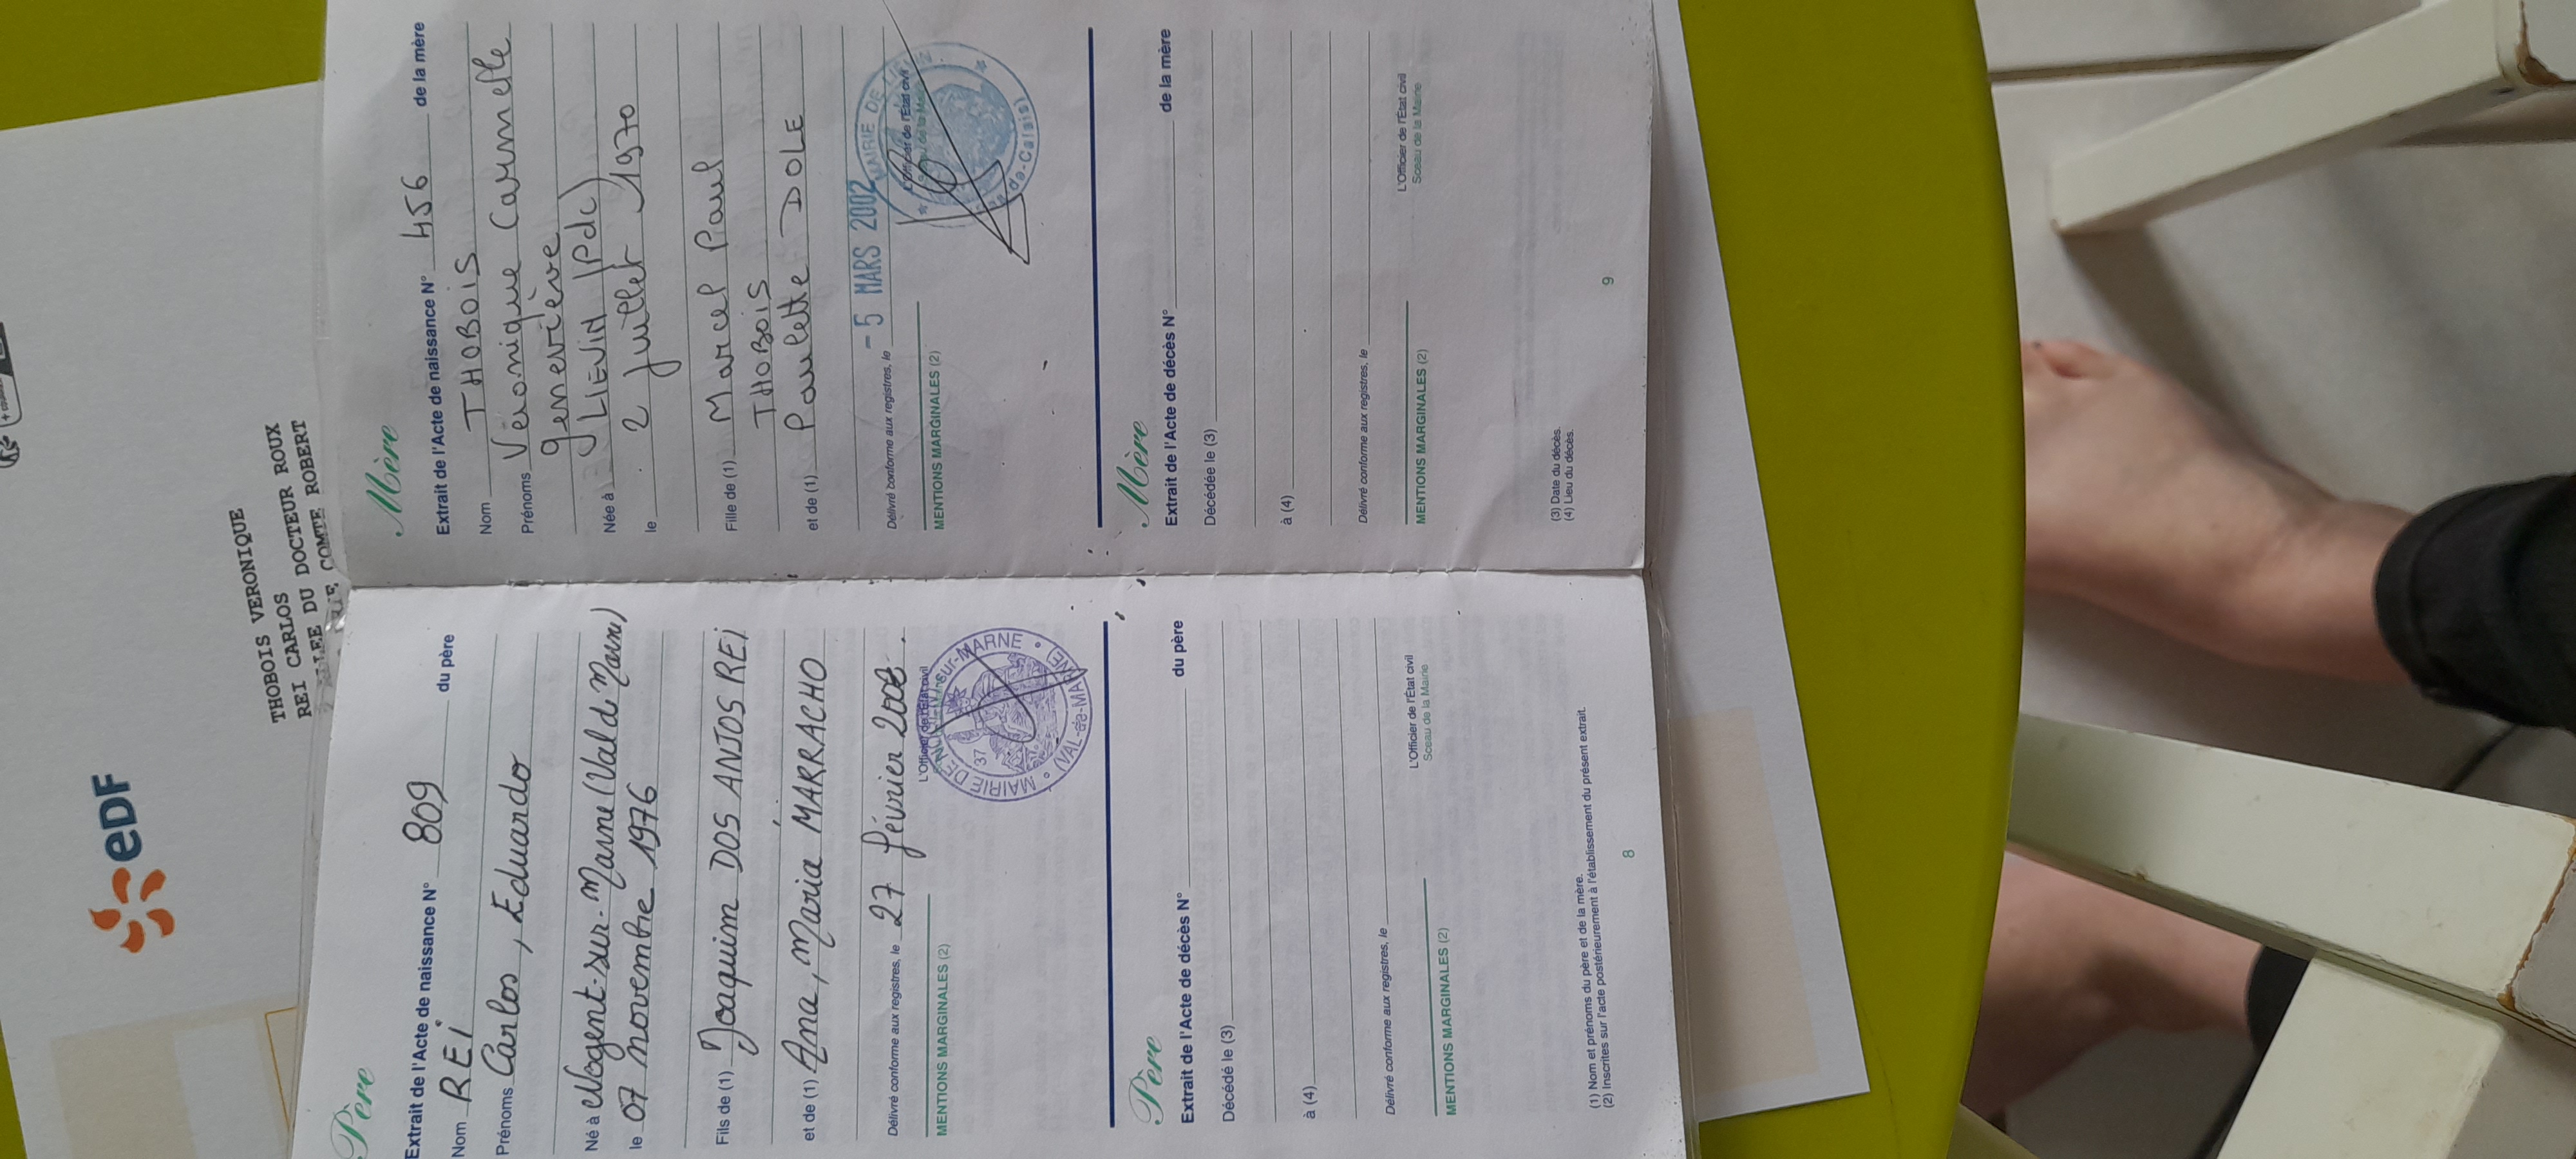 eDF
THOBOIS VERONIQUE
REI CARLOS DOCTEUR ROUX
ALLEE DU COMTE ROBERT
Père
Extrait de l'Acte de naissance N° 809 du père
Nom REI
Prénoms Carlos, Eduardo
Né à Nogent-sur-Marne (Val de Marne)
le 07 novembre 1976
Fils de (1) Joaquim DOS ANJOS REI
et de (1) Ana, Maria MARRACHO
Délivré conforme aux registres, le 27 février 2002.
L'Officier de l'État civil
MAIRIE DE NOGENT-sur-MARNE
(VAL-de-MARNE)
37
MENTIONS MARGINALES (2)
Père
Extrait de l'Acte de décès N° du père
Décédé le (3)
à (4)
Délivré conforme aux registres, le
L'Officier de l'État civil
Sceau de la Mairie
MENTIONS MARGINALES (2)
(1) Nom et prénoms du père et de la mère.
(2) Inscrites sur l'acte postérieurement à l'établissement du présent extrait.
8
Mère
Extrait de l'Acte de naissance N° 456 de la mère
Nom THOBOIS
Prénoms Véronique Carmelle
geneviève
Née à LIEVIN (Pdc)
le 2 Juillet 1970
Fille de (1) Marcel Paul
THOBOIS
et de (1) Paulette DOLE
Délivré conforme aux registres, le - 5 MARS 2002
L'Officier de l'État civil
Sceau de la Mairie
MAIRIE DE
de-Calais)
MENTIONS MARGINALES (2)
Mère
Extrait de l'Acte de décès N° de la mère
Décédée le (3)
à (4)
Délivré conforme aux registres, le
L'Officier de l'État civil
Sceau de la Mairie
MENTIONS MARGINALES (2)
(3) Date du décès.
(4) Lieu du décès.
9